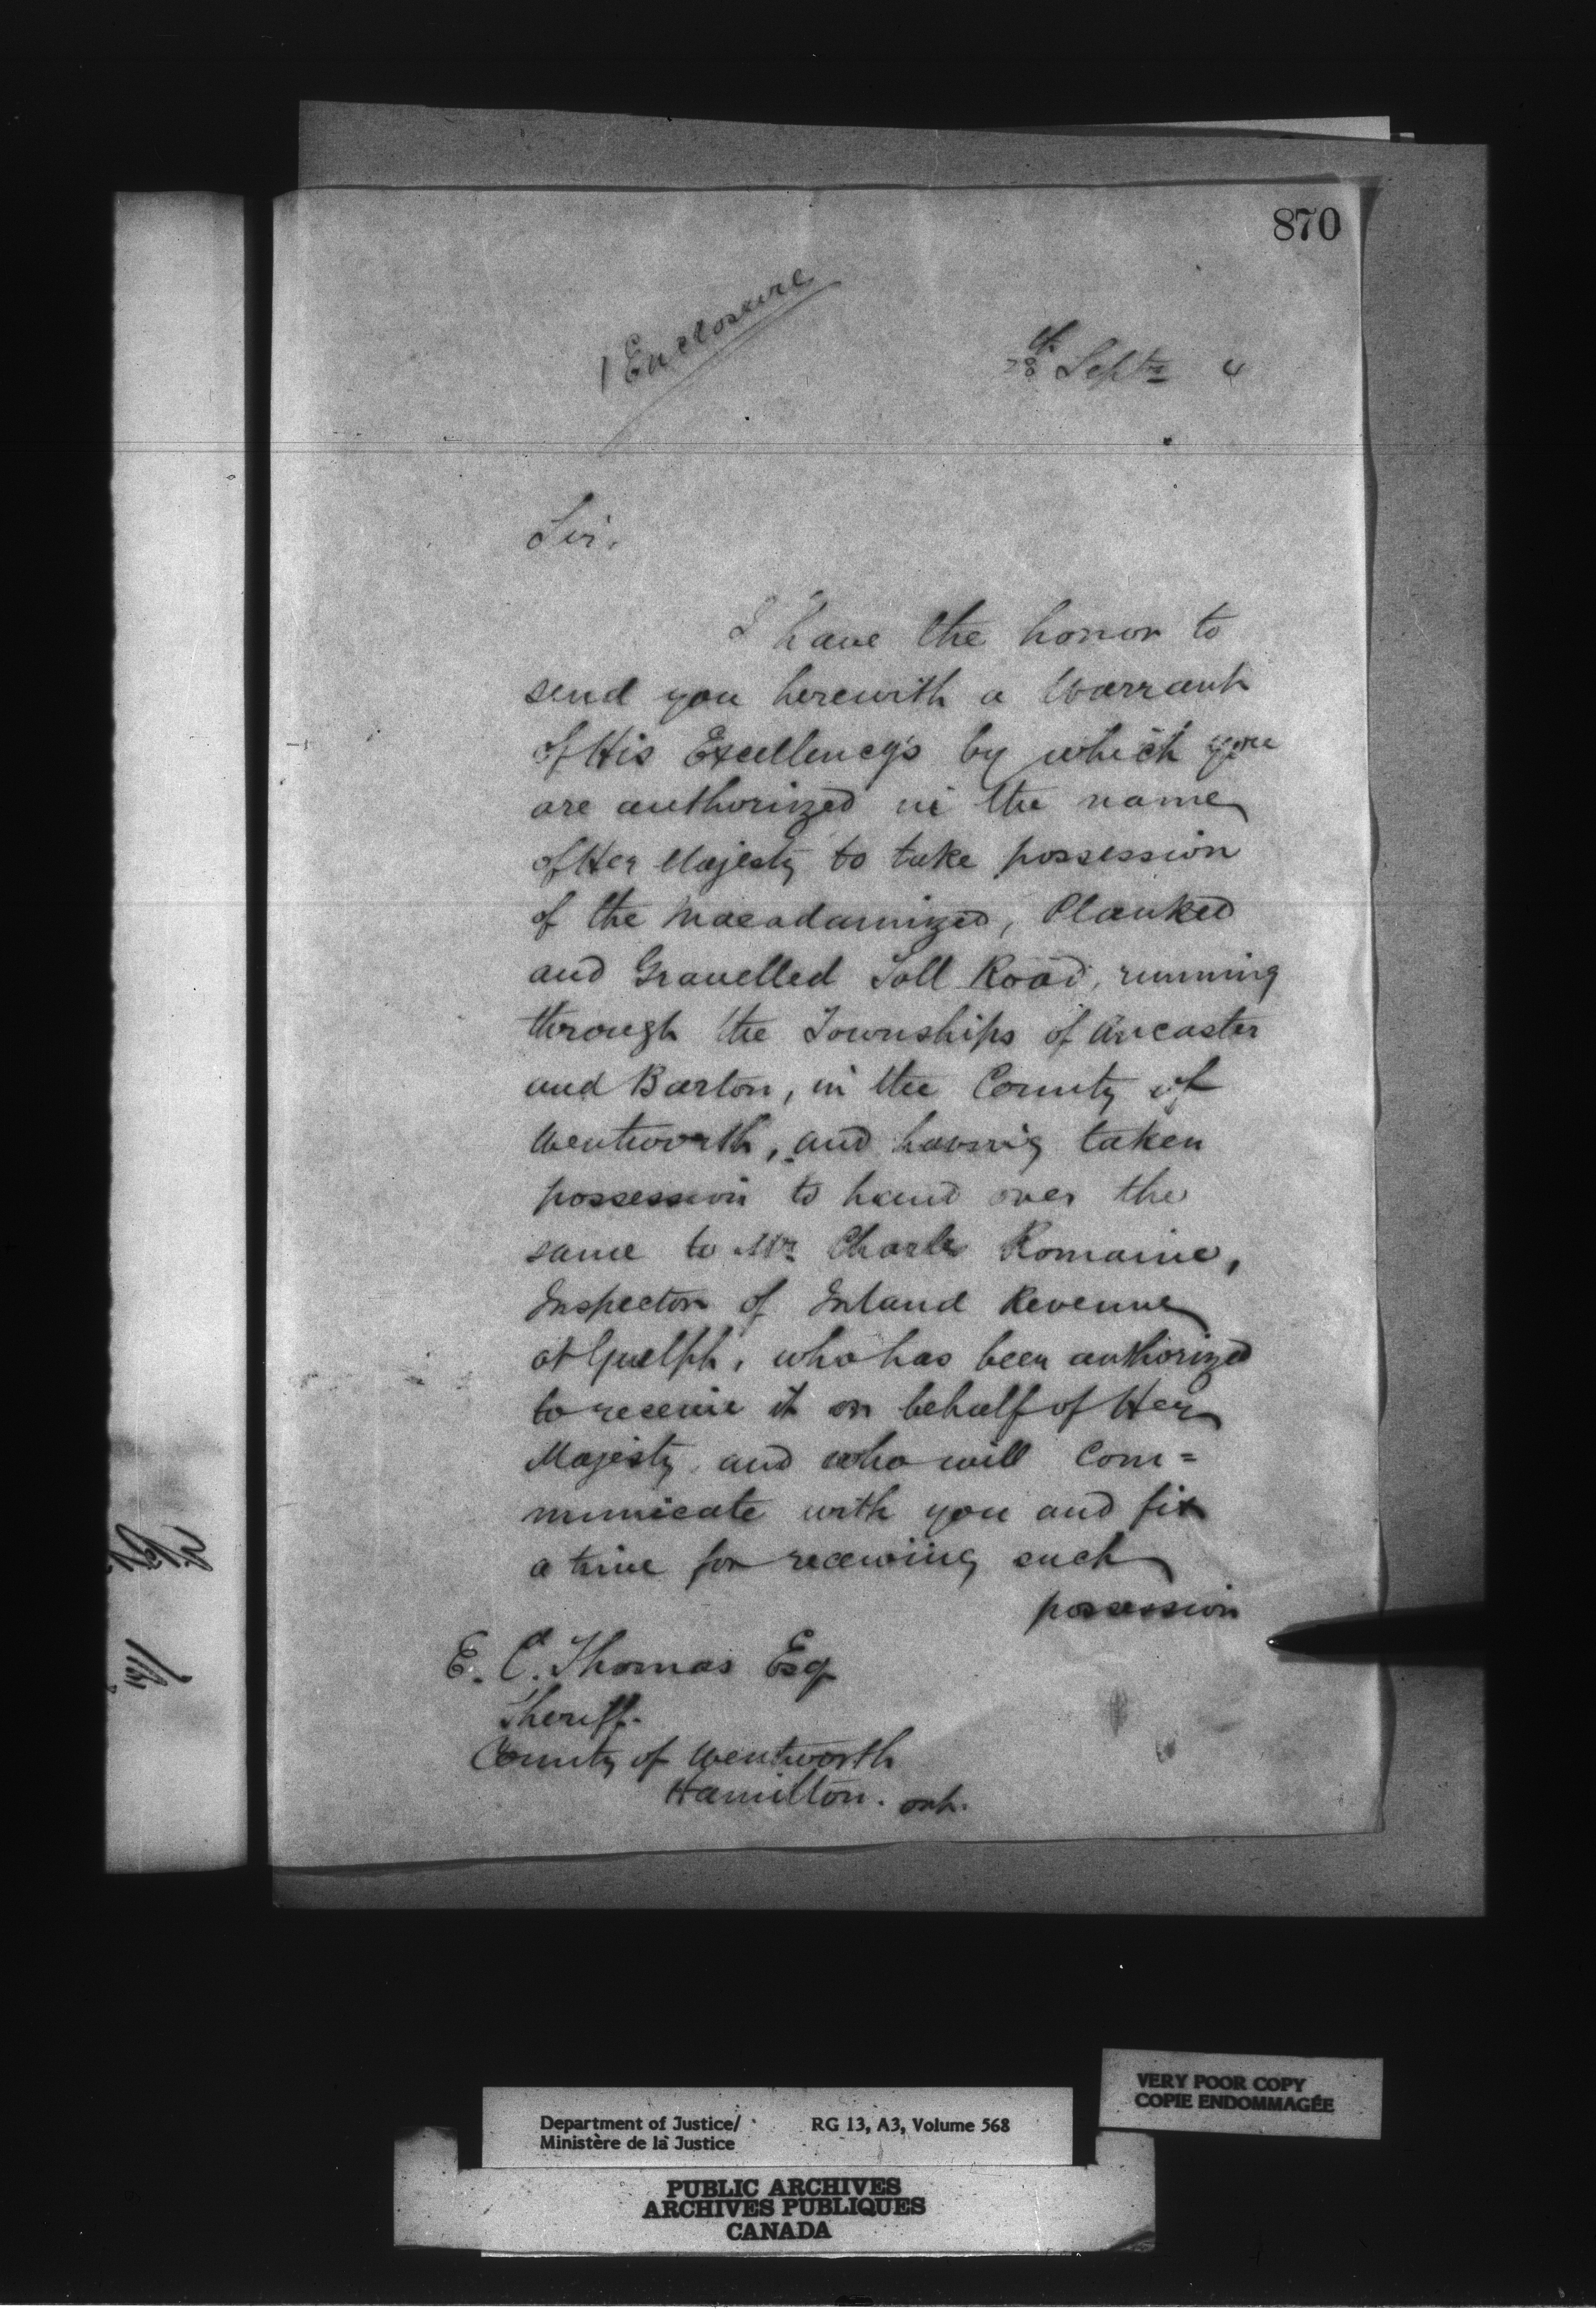 870
1 Enclosure
28th Septr 4
Sir,
I have the honor to
send you herewith a Warrant
of His Excellency's by which you
are authorized in the name
of Her Majesty to take possession
of the Macadamized, Planked
and Gravelled Toll Road, running
through the Townships of Ancaster
and Barton, in the County of
Wentworth, and having taken
possession to hand over the
same to Mr Charles Romaine,
Inspector of Inland Revenue
at Guelph, who has been authorized
to receive it on behalf of Her
Majesty and who will Com=
municate with you and fix
a time for receiving such
possession
E. C. Thomas Esq
Sheriff.
County of Wentworth
Hamilton. Ont.
VERY POOR COPY
COPIE ENDOMMAGÉE
Department of Justice/ RG 13, A3, Volume 568
Ministère de la Justice
PUBLIC ARCHIVES
ARCHIVES PUBLIQUES
CANADA